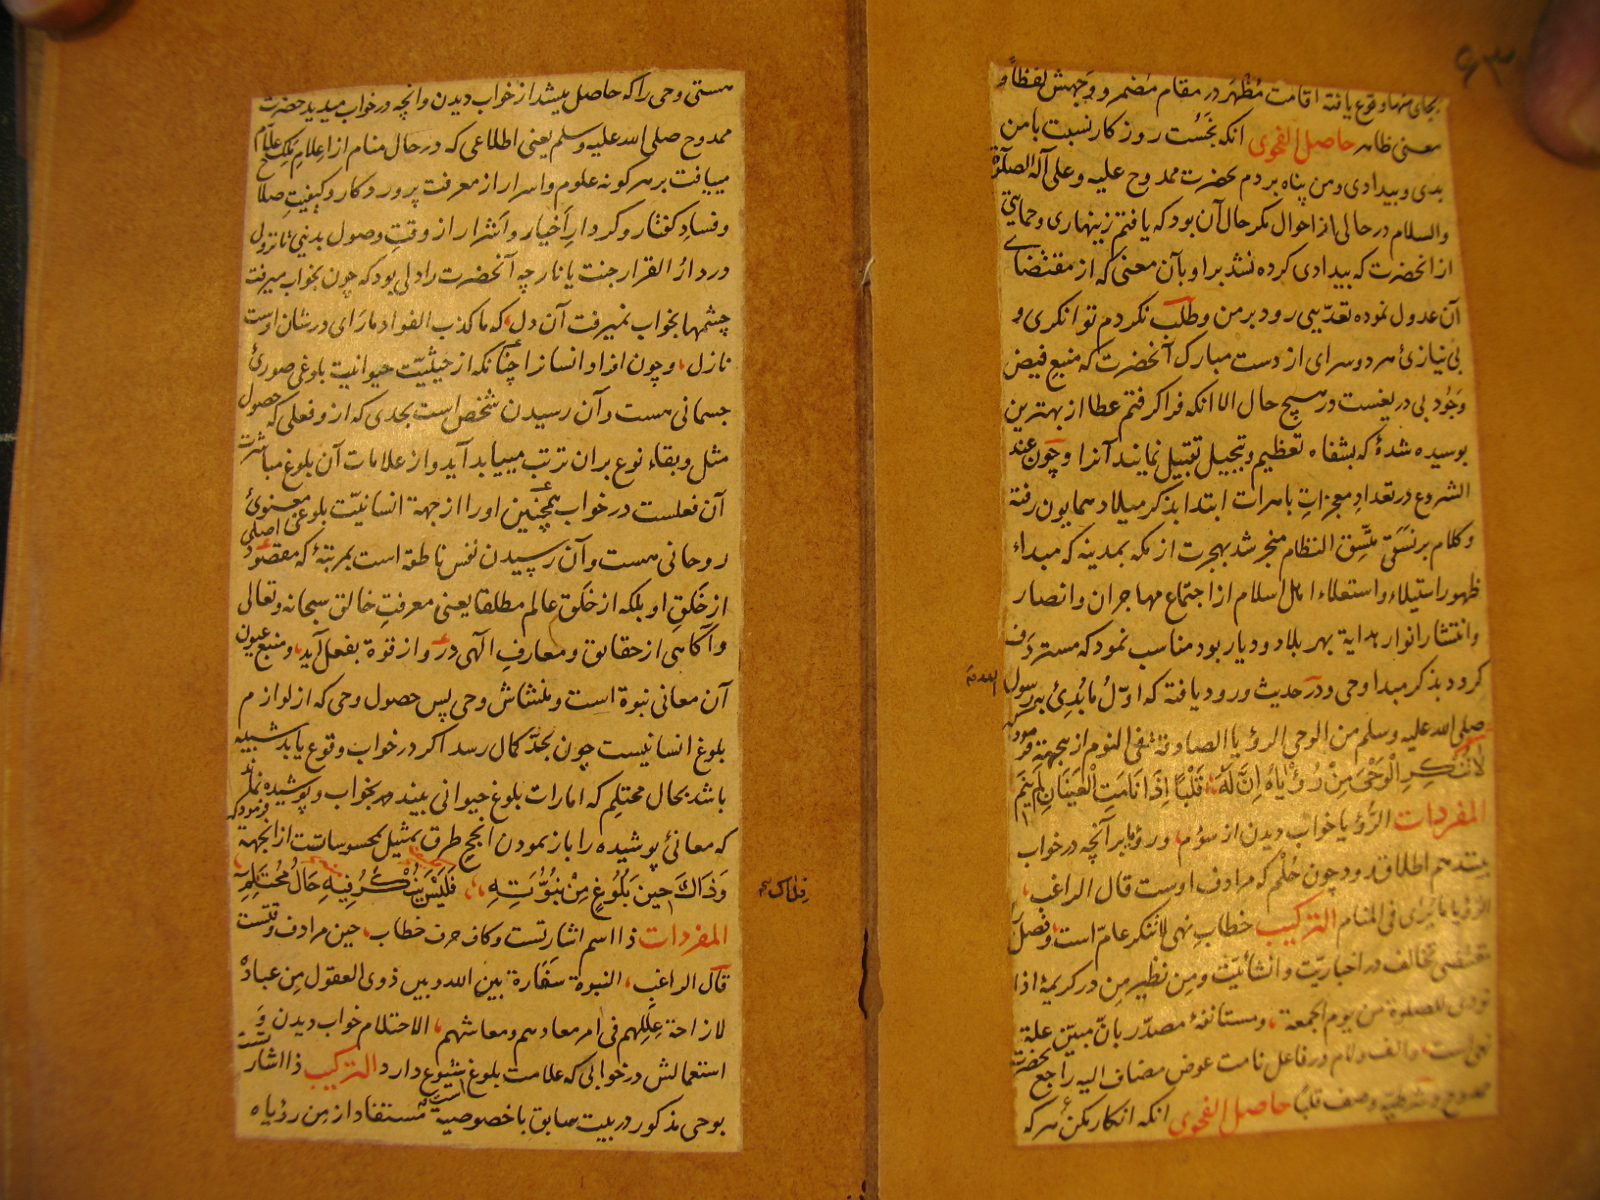 ۶۳
بجای منها وقوع یافته اقامت مُظهَر در مقام مضمر و وجهش لفظاً و
معنی ظاهر حاصل الفحوی انکه نجُست روزکار نسبت بامن
بدی و بیدادی و من پناه بردم بحضرت ممدوح علیه و علی آله الصلوة
والسلام در حالی از احوال مکر حال آن بود که یافتم زینهاری و حمایتی
از انحضرت که بیدادی کرده نشد بر او بآن معنی که از مقتضای
آن عدول نموده تعدّیی رود بر من و طلب نکردم توانکری و
بی نیازیٔ هر دو سرای از دست مبارک آنحضرت که منبع فیض
وجُود بی دریغست در هیچ حال الا انکه فرا کرفتم عطا از بهترین
بوسیده شدهٔ که بشفاه تعظیم و تبجیل تقبیل نمایند آنرا و چون عند
الشروع در تعدادِ معجزاتِ باهرات ابتدا بذکر میلاد همایون رفته
و کلام بر نسَقِ متّسِق النظام منجر شد بهجرت از مکه بمدینه که مبداء
ظهور استیلاء و استعلاء اهل اسلام از اجتماع مهاجران و انصار
و انتشار انوار هدایة بهر بلاد و دیار بود مناسب نمود که مستردَف
کردد بذکر مبدا وحی و در حدیث ورود یافته که اوّلُ ما بُدِئ به رسول
الله
صلی الله علیه وسلم من الوحی الرؤیا الصادقة فی النوم ازینجهة فرموده
لا تُنْکِرِ الْوَحْیَ مِنْ رُؤْیَاهُ اِنَّ لَهُ ؛ قَلْبًا اِذَا نَامَتِ الْعَیْنَانِ لَمْ یَنَمِ
المفردات الرُؤیا خواب دیدن از سوُم، و رؤیا بر آنچه در خواب
بینند هم اطلاق رود چون حُلْم که مرادف اوست قال الراغب،
الرؤیا ما یُرٰی فی المنام الترکیب خطابِ نهی لا تنکر عامّ است، و فصل
مقتضی تخالف در اخباریّت و انشائیّت و مِن نظیر مِن در کریمهٔ اذا
نودی للصلوة من یوم الجمعة، و مستانفهٔ مصدّر بانّ مبیّن علة
نهی است، و الف و لام در فاعل نامت عوض مضاف الیه راجع بحضرت
ممدوح و شرطیه وصف قلبًا حاصل الفحوی انکه انکار مکن هر که
هستی وحی را که حاصل میشد از خواب دیدن و انچه در خواب میدید حضرت
ممدوح صلی الله علیه وسلم یعنی اطلاعی که در حال منام از اعلامِ ملک علّام
مییافت بر هر کونه علوم و اسرار از معرفت پروردکار و کیفیتِ صلاح
و فساد کفتار و کردارِ اَخیار و اَشرار از وقتِ وصول بدنیی تا نزول
در دارُ القرار جنت یا نار چه آنحضرت را دلی بود که چون بخواب میرفت
چشمها بخواب نمیرفت آن دل، که ما کذب الفواد ما رَای در شان اوست
نازل، و چون افراد انسانرا چنانکه از حیثیّت حیوانیت بلوغی صوریٔ
جسمانی هست و آن رسیدن شخص است بحدی که از و فعلی که حصول
مثل و بقاء نوع بر ان ترتب مییابد آید و از علامات آن بلوغ مباشرت
آن فعلست در خواب همچنین او را از جهة انسانیّت بلوغی معنویٔ
روحانی هست و آن رسیدن نفس ناطقه است بمرتبهٔ که مقصود اصلی
از خَلقِ او بلکه از خَلق عالم مطلقا یعنی معرفتِ خالق سبحانه و تعالی
و آکاهی از حقایق و معارفِ الٓهی در و از قوة بفعل آید، و منبع عیون
آن معانی نبوة است و منشاش وحی پس حصول وحی که از لوازم
بلوغ انسانیست چون بحدّ کمال رسد اکر در خواب وقوع یابد شبیه
باشد بحال محتلِم که امارات بلوغ حیوانی بیند در بخواب و پوشیده نماند
که معانیٔ پوشیده را باز نمودن انجح طرق تمثیل بمحسوساتست ازانجهة فرموده که
وَذَاكَ حِینَ بُلُوغٍ مِنْ نُبُوَّتِهِ ؛ فَلَیْسَ یُنْکَرُ فِیهِ حَالُ مُحْتَلِمِ
المفردات ذا اسم اشارتست و کاف حرف خطاب، حین مرادف وقتست
قال الراغب، النبوة سَفَارة بین الله و بین ذوی العقول مِن عباده
لازاحة عِلَلِهم فی امر معادهم و معاشهم، الاحتلام خواب دیدن و
استعمالش در خوابی که علامت بلوغ است شیوع دارد الترکیب ذا اشارتست
بوحی مذکور در بیت سابق با خصوصیة مستفاد از مِن رؤیاه